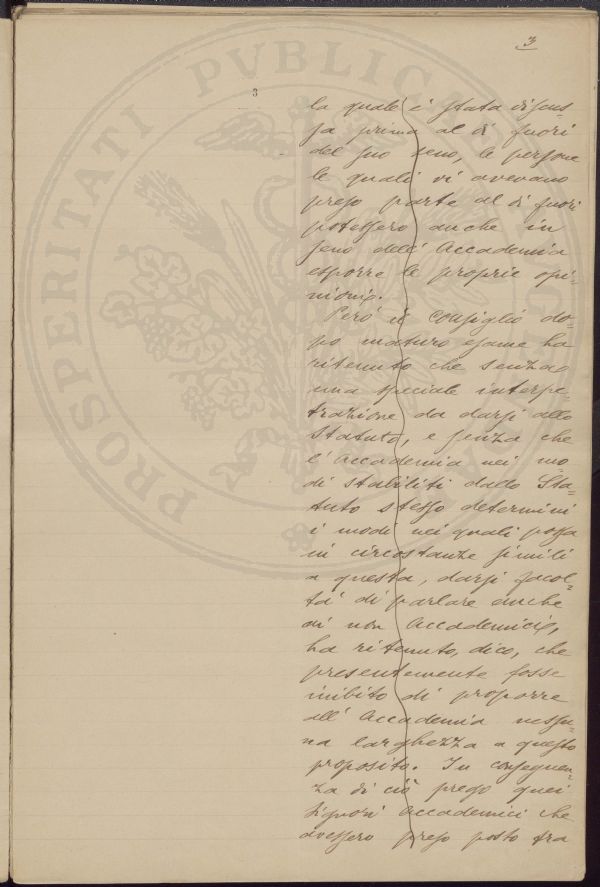 3
3
la quale è stata discus-
sa prima al di fuori
del suo seno, le persone
le quali vi avevano
preso parte al di fuori
potessero anche in
seno dell' Accademia
esporre le proprie opi-
nioni.
Però il Consiglio do-
po maturo esame ha
ritenuto che senza
una speciale interpe-
trazione da darsi allo
Statuto, e senza che
l' Accademia nei mo-
di stabiliti dallo Sta-
tuto stesso determini
i modi nei quali possa
in circostanze simili
a questa, darsi facol-
tà di parlare anche
ai non Accademici,
ha ritenuto, dico, che
presentemente fosse
inibito di proporre
all' Accademia nessu-
na larghezza a questo
proposito. In conseguen-
za di ciò prego quei
Signori Accademici che
avessero preso posto tra
PROSPERITATI PVBLICAE